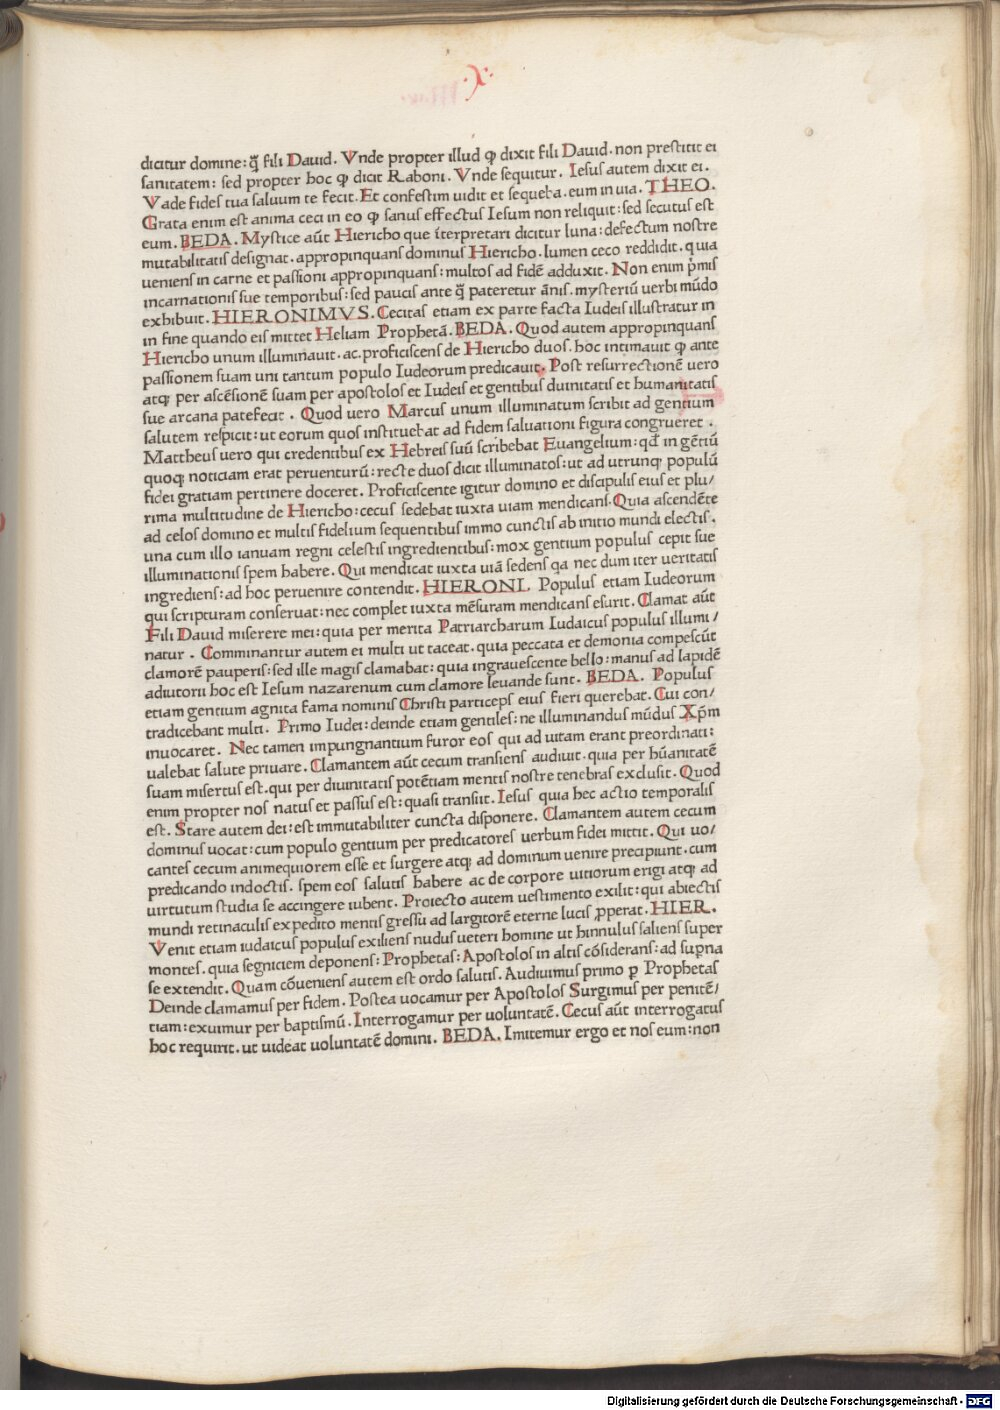 ·X·
dicitur domine: q̃ fili Dauid. Vnde propter illud ꝙ dixit fili Dauid. non prestitit ei
sanitatem: sed propter hoc ꝙ dicit Raboni. Vnde sequitur. Iesus autem dixit ei.
Vade fides tua saluum te fecit. Et confestim uidit et sequeba. eum in uia. THEO.
Grata enim est anima ceci in eo ꝙ sanus effectus Iesum non reliquit: sed secutus est
eum. BEDA. Mystice aūt Hiericho que īterpretari dicitur luna: defectum nostre
mutabilitatis designat. appropinquans dominus Hiericho. lumen ceco reddidit. quia
ueniens in carne et passioni appropinquans: multos ad fidē adduxit. Non enim p̄mis
incarnationis sue temporibus: sed paucis ante q̃ pateretur ānis. mysteriū uerbi mūdo
exhibuit. HIERONIMVS. Cecitas etiam ex parte facta Iudeis illustratur in
in fine quando eis mittet Heliam Prophetā. BEDA. Quod autem appropinquans
Hiericho unum illuminauit. ac. proficiscens de Hiericho duos. hoc intimauit ꝙ ante
passionem suam uni tantum populo Iudeorum predicauit. Post resurrectionē uero
atqꝫ per ascēsionē suam per apostolos et Iudeis et gentibus diuinitatis et humanitatis
sue arcana patefecit. Quod uero Marcus unum illuminatum scribit ad gentium
salutem respicit: ut eorum quos instituebat ad fidem saluationi figura congrueret.
Mattheus uero qui credentibus ex Hebreis suū scribebat Euangelium: qđ in gētiū
quoqꝫ noticiam erat peruenturū: recte duos dicit illuminatos: ut ad utrunqꝫ populū
fidei gratiam pertinere doceret. Proficiscente igitur domino et discipulis eius et plu/
rima multitudine de Hiericho: cecus sedebat iuxta uiam mendicans. Quia ascendēte
ad celos domino et multis fidelium sequentibus immo cunctis ab initio mundi electis.
una cum illo ianuam regni celestis ingredientibus: mox gentium populus cepit sue
illuminationis spem habere. Qui mendicat iuxta uiā sedens qa nec dum iter ueritatis
ingrediens: ad hoc peruenire contendit. HIERONI. Populus etiam Iudeorum
qui scripturam conseruat: nec complet iuxta mēsuram mendicans esurit. Clamat aūt
Fili Dauid miserere mei: quia per merita Patriarcharum Iudaicus populus illumi/
natur. Comminantur autem ei multi ut taceat. quia peccata et demonia compescūt
clamorē pauperis: sed ille magis clamabat: quia ingrauescente bello: manus ad lapidē
adiutorii hoc est Iesum nazarenum cum clamore leuande sunt. BEDA. Populus
etiam gentium agnita fama nominis Christi particeps eius fieri querebat. Cui con/
tradicebant multi. Primo Iudei: deinde etiam gentiles: ne illuminandus mūdus Xp̄m
inuocaret. Nec tamen impungnantium furor eos qui ad uitam erant preordinati:
ualebat salute priuare. Clamantem aūt cecum transiens audiuit. quia per hūanitatē
suam misertus est. qui per diuinitatis potētiam mentis nostre tenebras exclusit. Quod
enim propter nos natus et passus est: quasi transiit. Iesus quia hec actio temporalis
est. Stare autem dei: est immutabiliter cuncta disponere. Clamantem autem cecum
dominus uocat: cum populo gentium per predicatores uerbum fidei mittit. Qui uo/
cantes cecum animequiorem esse et surgere atqꝫ ad dominum uenire precipiunt. cum
predicando indoctis. spem eos salutis habere ac de corpore uitiorum erigi atqꝫ ad
uirtutum studia se accingere iubent. Proiecto autem uestimento exilit: qui abiectis
mundi retinaculis expedito mentis gressu ad largitorē eterne lucis ꝓperat. HIER.
Venit etiam iudaicus populus exiliens nudus ueteri homine ut hinnulus saliens super
montes. quia segniciem deponens: Prophetas: Apostolos in altis cōsiderans: ad sup̄na
se extendit. Quam cōueniens autem est ordo salutis. Audiuimus primo ꝑ Prophetas
Deinde clamamus per fidem. Postea uocamur per Apostolos Surgimus per penitē/
tiam: exuimur per baptismū. Interrogamur per uoluntatē. Cecus aūt interrogatus
hoc requirit. ut uideat uoluntatē domini. BEDA. Imitemur ergo et nos eum: non
Digitalisierung gefördert durch die Deutsche Forschungsgemeinschaft · DFG